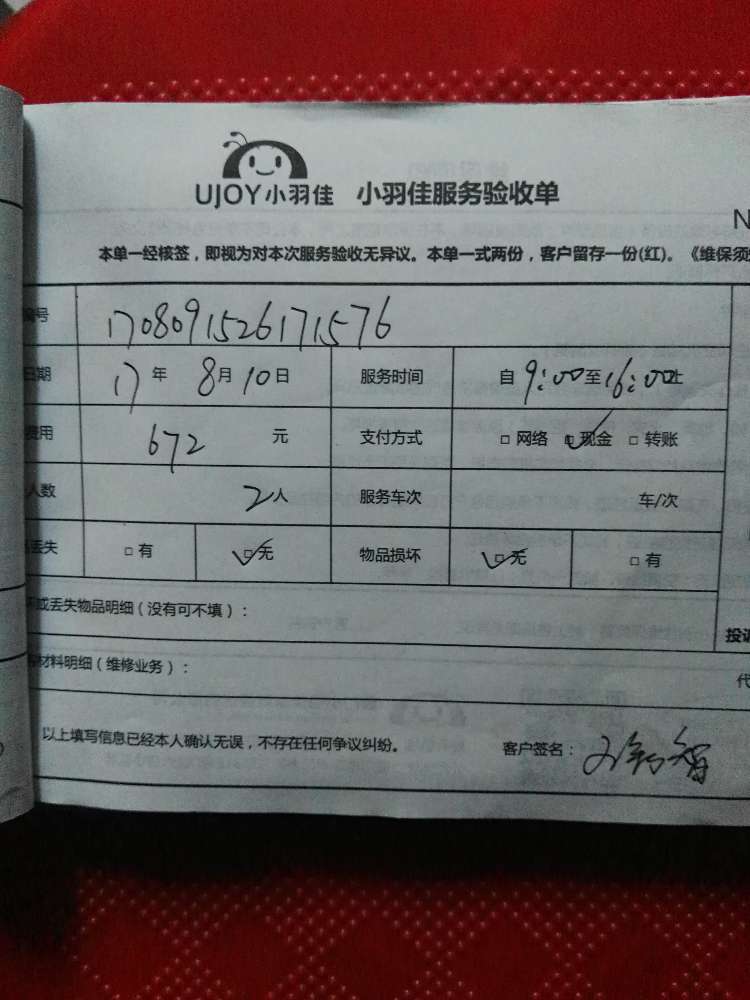 UJOY小羽佳 小羽佳服务验收单
N
本单一经核签，即视为对本次服务验收无异议。本单一式两份，客户留存一份(红)。《维保须
号 1708091526171576
日期 17年 8月10日 服务时间 自9:00至16:00止
费用 672 元 支付方式 □ 网络 □ 现金 □ 转账
人数 2人 服务车次 车/次
丢失 □ 有 □ 无 物品损坏 □ 无 □ 有
或丢失物品明细（没有可不填）：
投诉
材料明细（维修业务）：
代
以上填写信息已经本人确认无误，不存在任何争议纠纷。 客户签名：